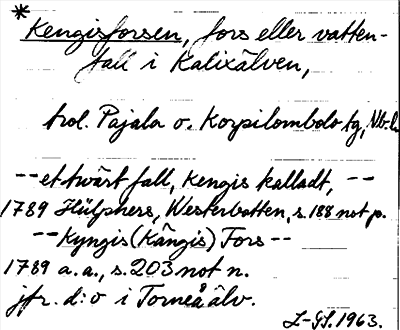 * Kengisforsen, fors eller vatten-
fall i Kalixälven,
trol. Pajala o. Korpilombolo tg, Nb. l.
-- et twärt fall, Kengis kalladt, --
1789 Hülphers, Westerbotten, s. 188 not p.
-- Kyngis (Kängis) Fors --
1789 a. a., s. 203 not n.
jfr. d:o i Torneå älv.
L-GS. 1963.